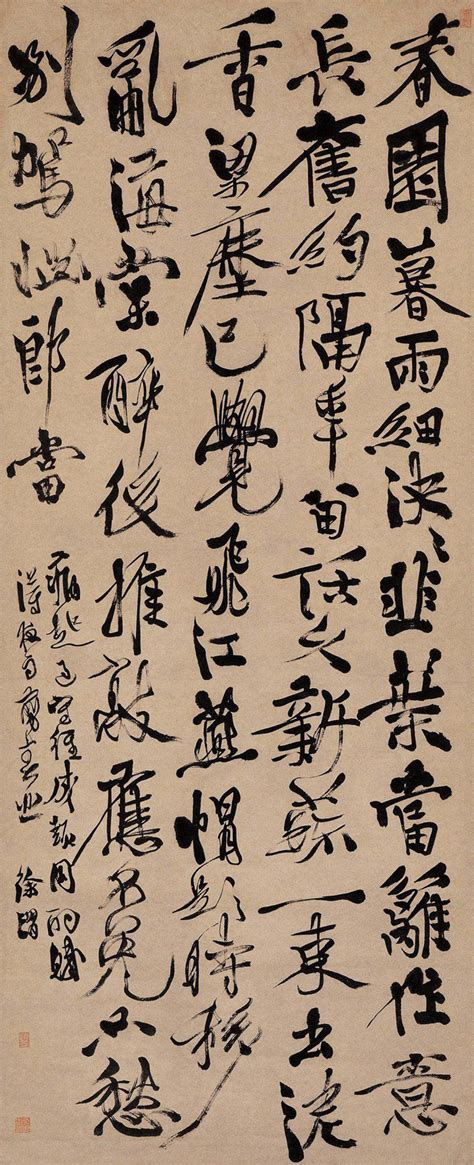 春園暮雨細泱々韭葉當籬作意
長舊約隔年留話久新蔬一束出泥
香梁塵已覺飛江燕帽影時移
亂海棠醉後推敲應不免只愁
別駕惱郎當
病起過
得夜雨剪春韭 徐渭